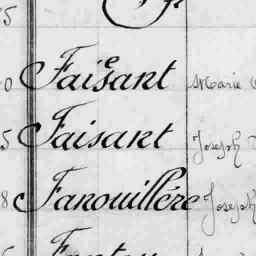 5
0 Faisant Marie
5 Faisant Joseph
8 Fanouillère Joseph